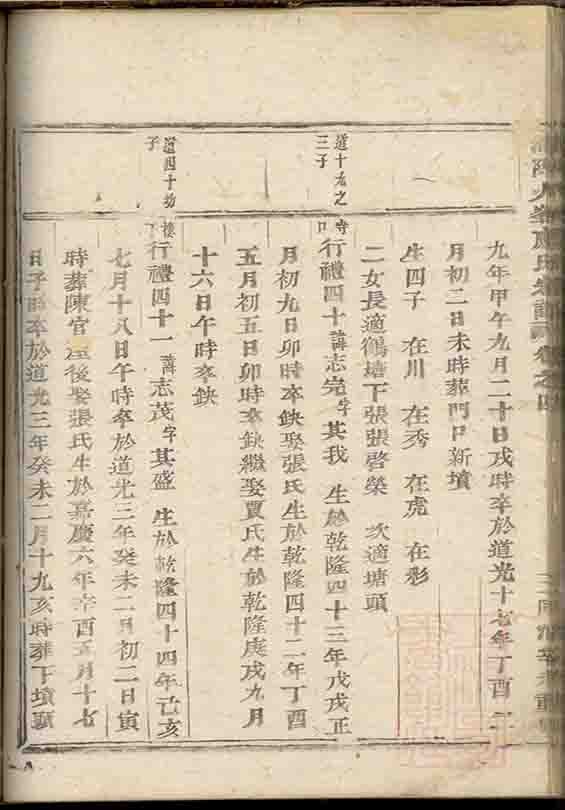 九年甲午九月二十日戌時卒於道光十七年丁酉二
月初二日未時葬門口新墳
生四子 在川 在秀 在虎 在彩
二女長適鶴塘下張張啓榮 次適塘頭
道十九之三子
行禮四十諱志完字其我 生於乾隆四十三年戊戌正
月初九日卯時卒缺娶張氏生於乾隆四十二年丁酉
五月初五日卯時卒缺繼娶賈氏生於乾隆庚戌九月
十六日午時卒缺
道四十幼子
行禮四十一諱志茂字其盛 生於乾隆四十四年己亥
七月十八日午時卒於道光三年癸未二月初二日寅
時葬陳官後娶張氏生於嘉慶六年辛酉五月十七
日子時卒於道光三年癸未二月十九亥時葬下墳頭